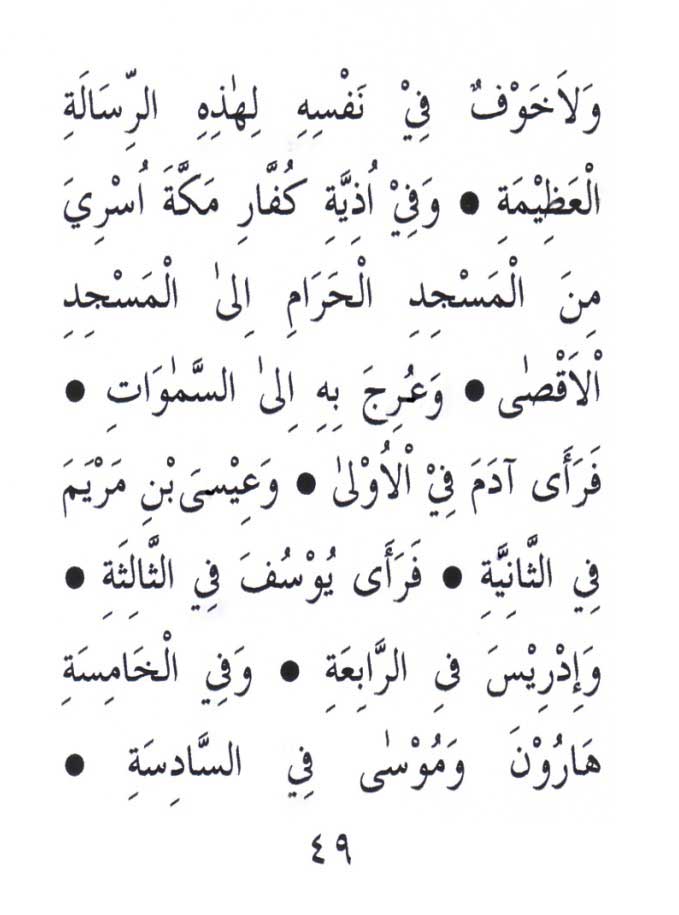 وَلاَخَوْفٌ فِيْ نَفْسِهِ لِهٰذِهِ الرِّسَالَةِ
الْعَظِيْمَةِ ● وَفِيْ اُذِيَّةِ كُفَّارِ مَكَّةَ اُسْرِيَ
مِنَ الْمَسْجِدِ الْحَرَامِ اِلىٰ الْمَسْجِدِ
الْاَقْصٰى ● وَعُرِجَ بِهِ اِلىٰ السَّمٰوَاتِ ●
فَرَأَى آدَمَ فِيْ الْاُوْلىٰ ● وَعِيْسىَ بْنِ مَرْيَمَ
فِي الثَّانِيَّةِ ● فَرَأَى يُوْسُفَ فِي الثَّالِثَةِ ●
وَإِدْرِيْسَ فىِ الرَّابِعَةِ ● وَفِي الْخَامِسَةِ
هَارُوْنَ وَمُوْسٰى فِي السَّادِسَةِ ●
٤٩